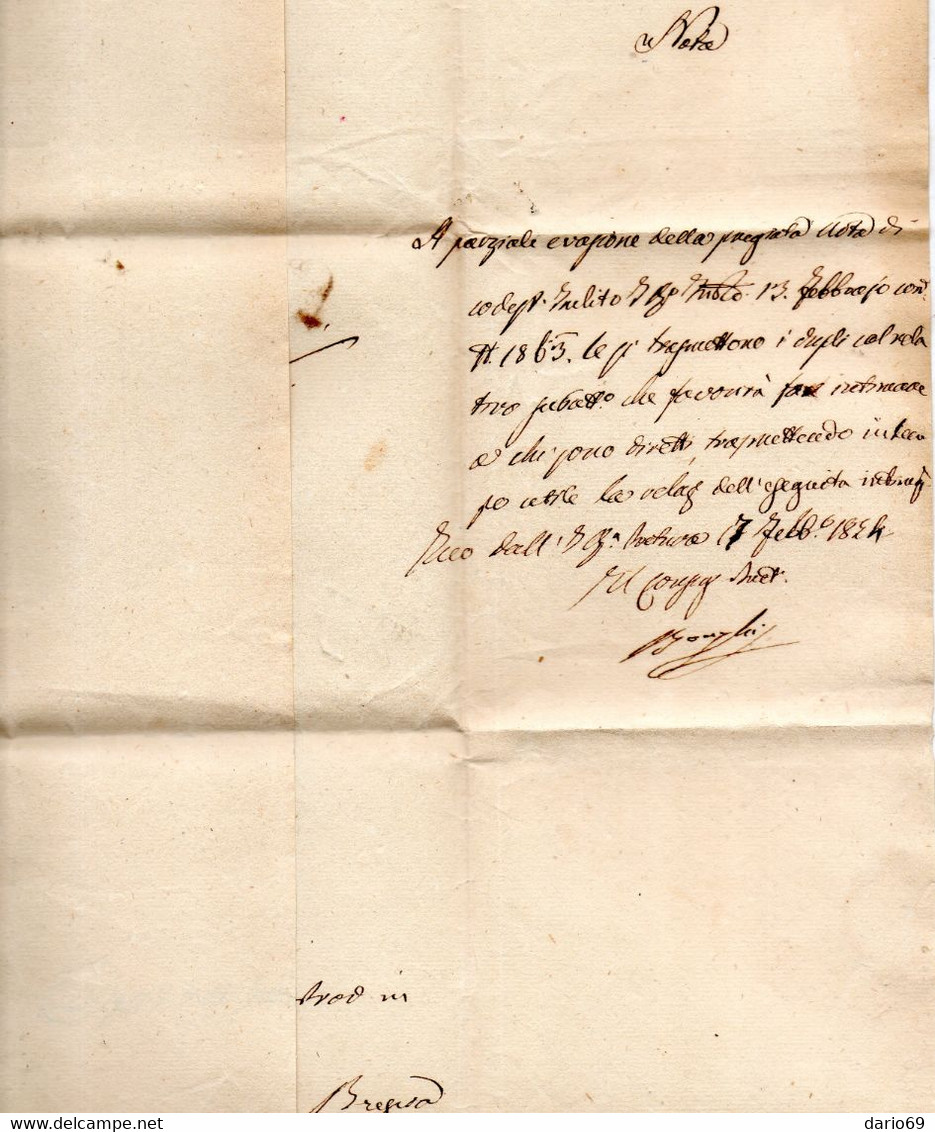 Nota
A parziale evasione della pregiata Nota di
codest. Inclito I. R. 13. Febbrajo corr.
N. 1863. le si trasmettono i dupli col rela
tivo che favorirà far intimare
a chi sono diretti, trasmettendo in tem
po utile la relaz dell'eseguita intimaz
dall' I. R. Pretura 17 Febb.o 1824
Il
Bonghi
in
Brescia
dario69